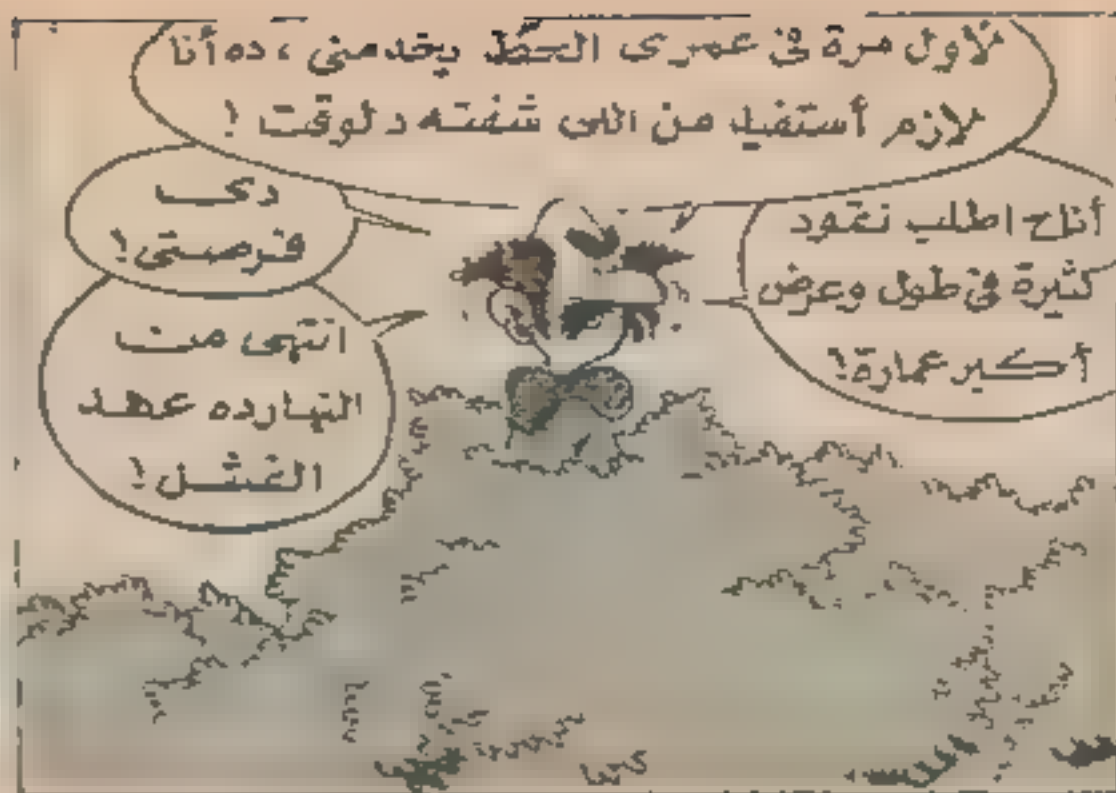 لأول مرة في عمرى الحظ يخدمنى ، ده أنا
لازم أستفيد من اللى شفته دلوقت !
أناح اطلب نقود
كثيرة في طول وعرض
أكبر عمارة !
دى
فرصتى !
انتهى من
النهارده عهد
الفشل !